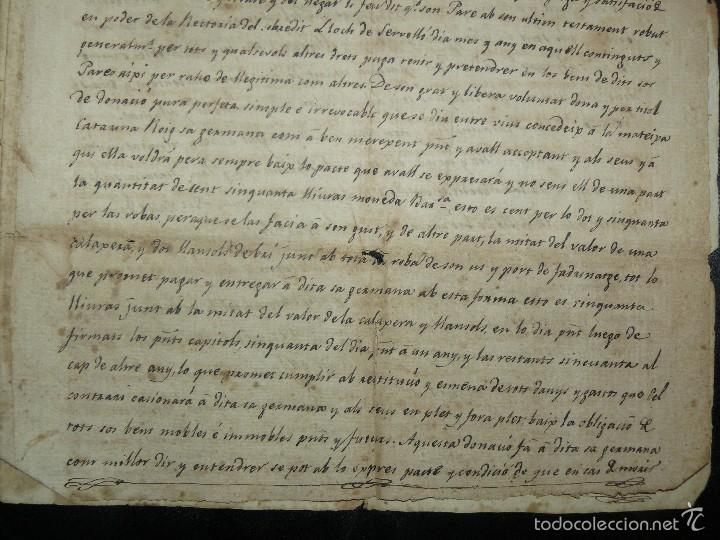 negar li feu dit qᵉ son Pare ab son ultim testament rebut
en poder de la Rectoria del sobredit Lloch de Servelló dia mes y any en aquell continguts y
generalmᵗ per tots y qualsevols altres drets puga tenir y pretendrer en los bens de dits sos
Pares aixi per rahó de llegitima com altres. De son grat y libera voluntat dona y per titol
de donació pura perfeta simple é irrevocable que se diu entre vius concedeix á la mateixa
Catarina Roig sa germana com á ben merexent pnt y avall acceptant y als seus y á
qui ella voldrá pera sempre baix lo pacte que avall se expresará y no sens ell de una part
la quantitat de cent sinquanta lliuras moneda Barsᵃ, esto es cent per lo dot y sinquanta
per las robas, peraque se las facia á son gust, y de altre part, la mitat del valor de una
calaxera, y dos Llansols de bri junt ab tota la roba de son us y port de fadrinatge, tot lo
que promet pagar y entregar á dita sa germana ab esta forma esto es sinquanta
lliuras junt ab la mitat del valor de la calaxera y Llansols, en lo dia pnt luego de
firmats los pnts capitols, sinquanta del dia pnt á un any, y las restants sincuanta al
cap de altre any, lo que promet cumplir ab restitució y esmena de tots danys y gastos que del
contrari casionará á dita sa germana y als seus en plet y fora plet baix la obligació de
tots sos bens mobles é immobles pnts y futurs. Aquesta donació fá á dita sa germana
com millor dir y entendrer se pot ab lo expres pacte y condició de que en cas de morir
todocoleccion.net